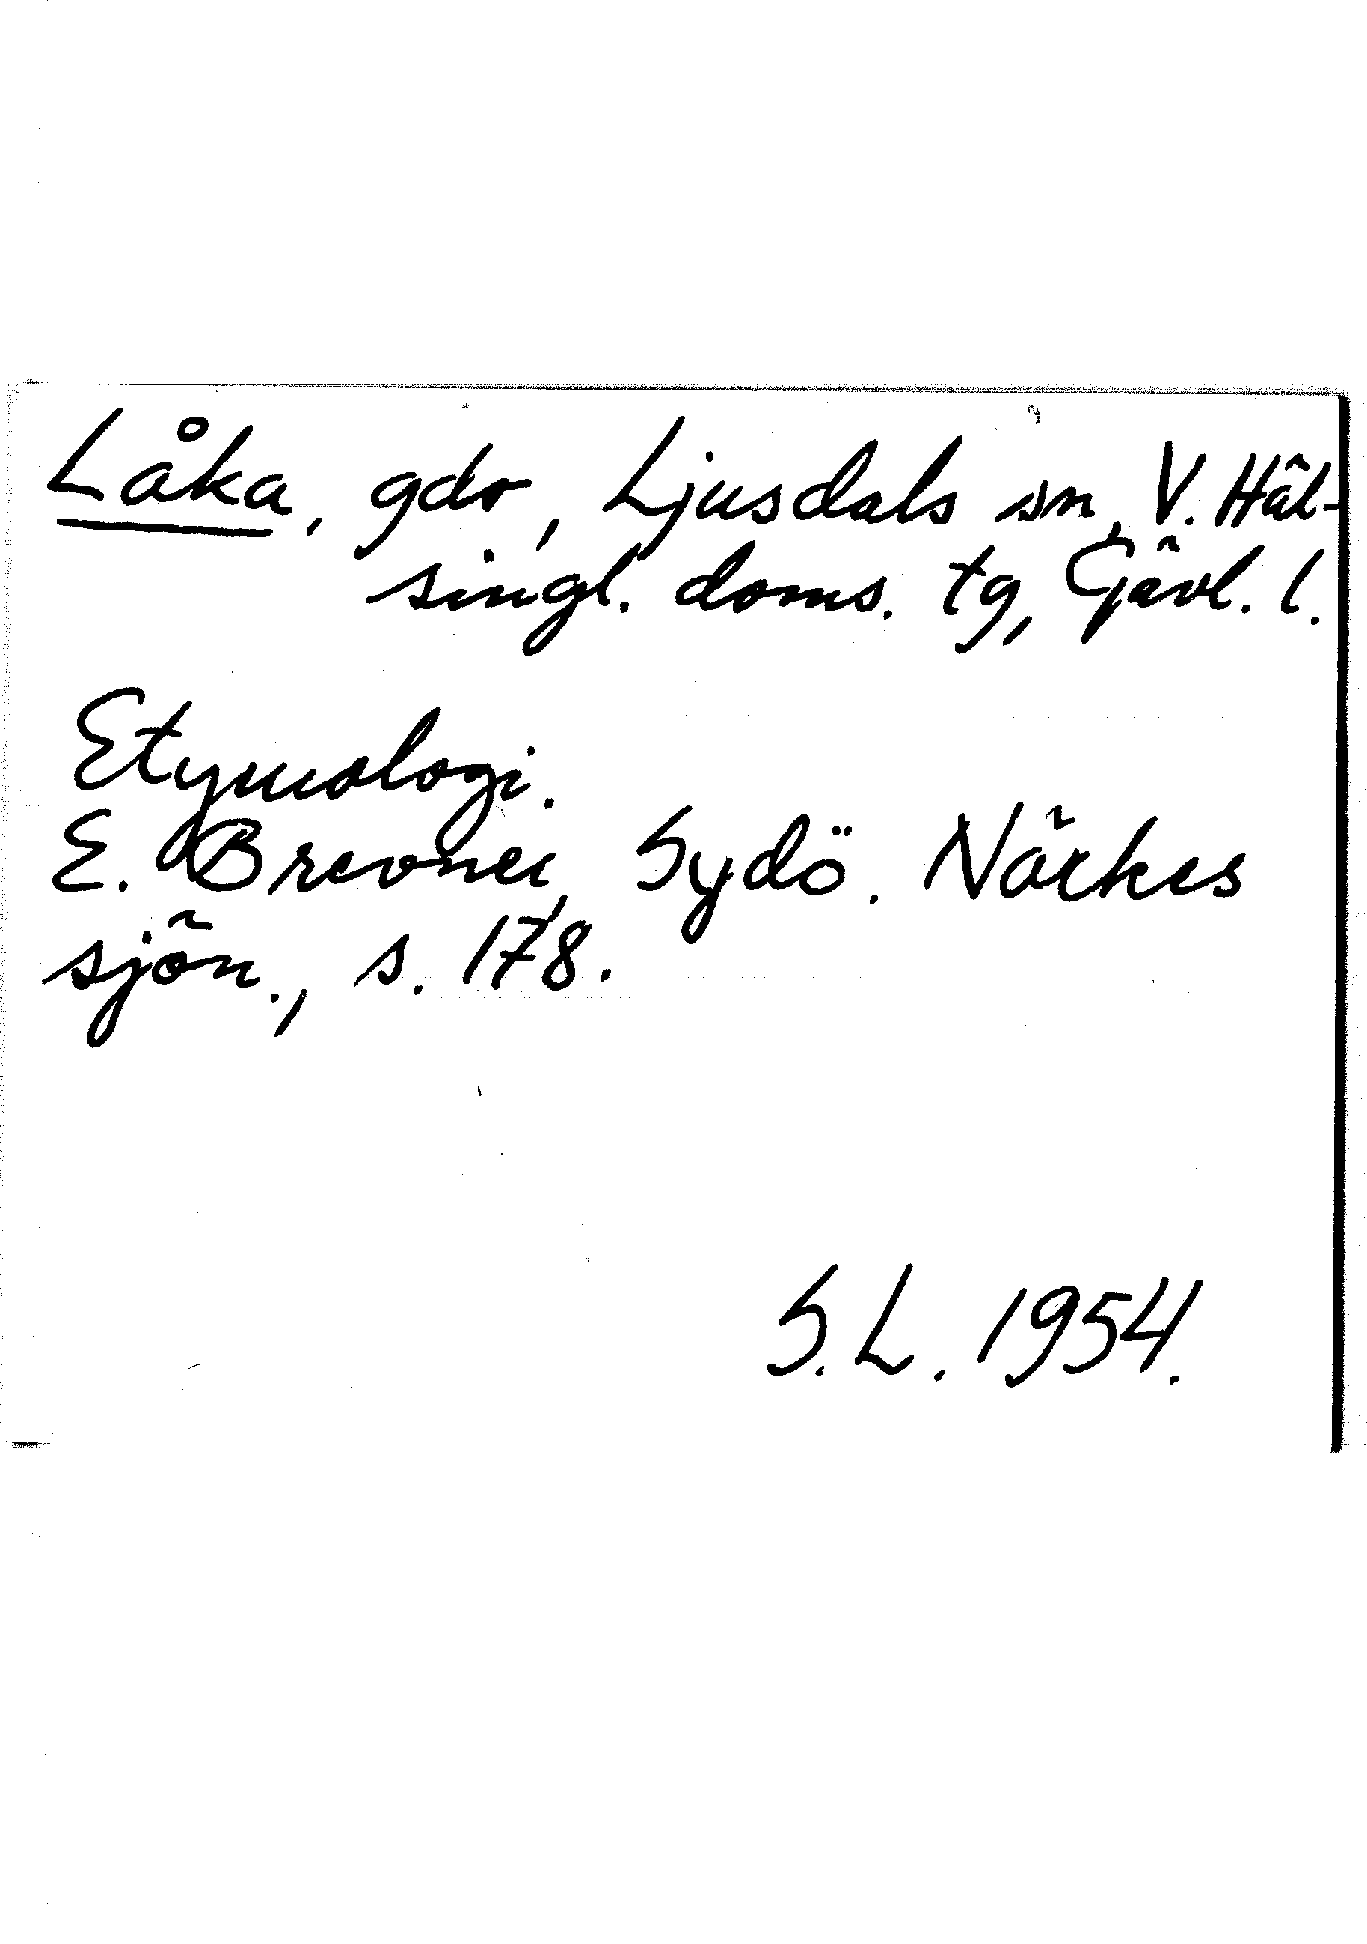 Låka, gdr, Ljusdals sn, V. Häl-
singl. doms. tg, Gävl. l.
Etymologi.
E. Brevner, Sydö. Närkes
sjön., s. 178.
S. L. 1954.